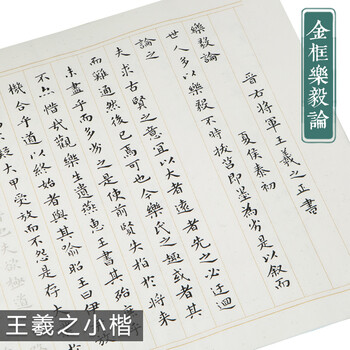 金框樂毅論
晉右將軍王羲之正書
夏侯泰初
樂毅論
世人多以樂毅不時拔營即墨為劣是以叙而
論之
夫求古賢之意宜以大者遠者先之必迂迴
而難通然後已焉可也今樂氏之趣或者其
未盡乎而多劣之是使前賢失指於將來
不亦惜哉觀樂生遺燕惠王書其殆庶
機合乎道以終始者與其喻昭王曰伊尹
大甲受放而不怨是存大
王羲之小楷